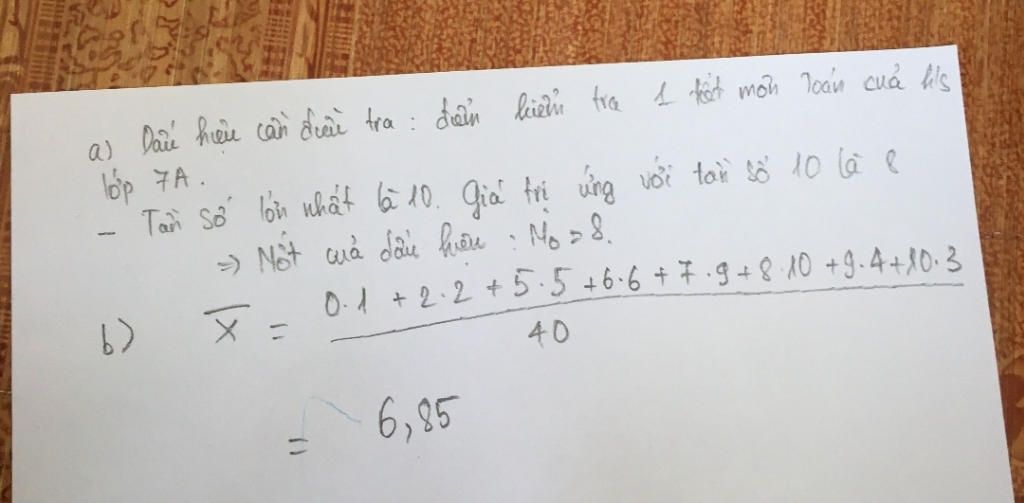 a) Dấu hiệu cần điều tra : điểm kiểm tra 1 tiết môn Toán của h/s
lớp 7A.
- Tần số lớn nhất là 10. Giá trị ứng với tần số 10 là 8
=> Mốt của dấu hiệu : M₀ = 8.
b) X̄ = \frac{0.1 + 2.2 + 5.5 + 6.6 + 7.9 + 8.10 + 9.4 + 10.3}{40}
= 6,85